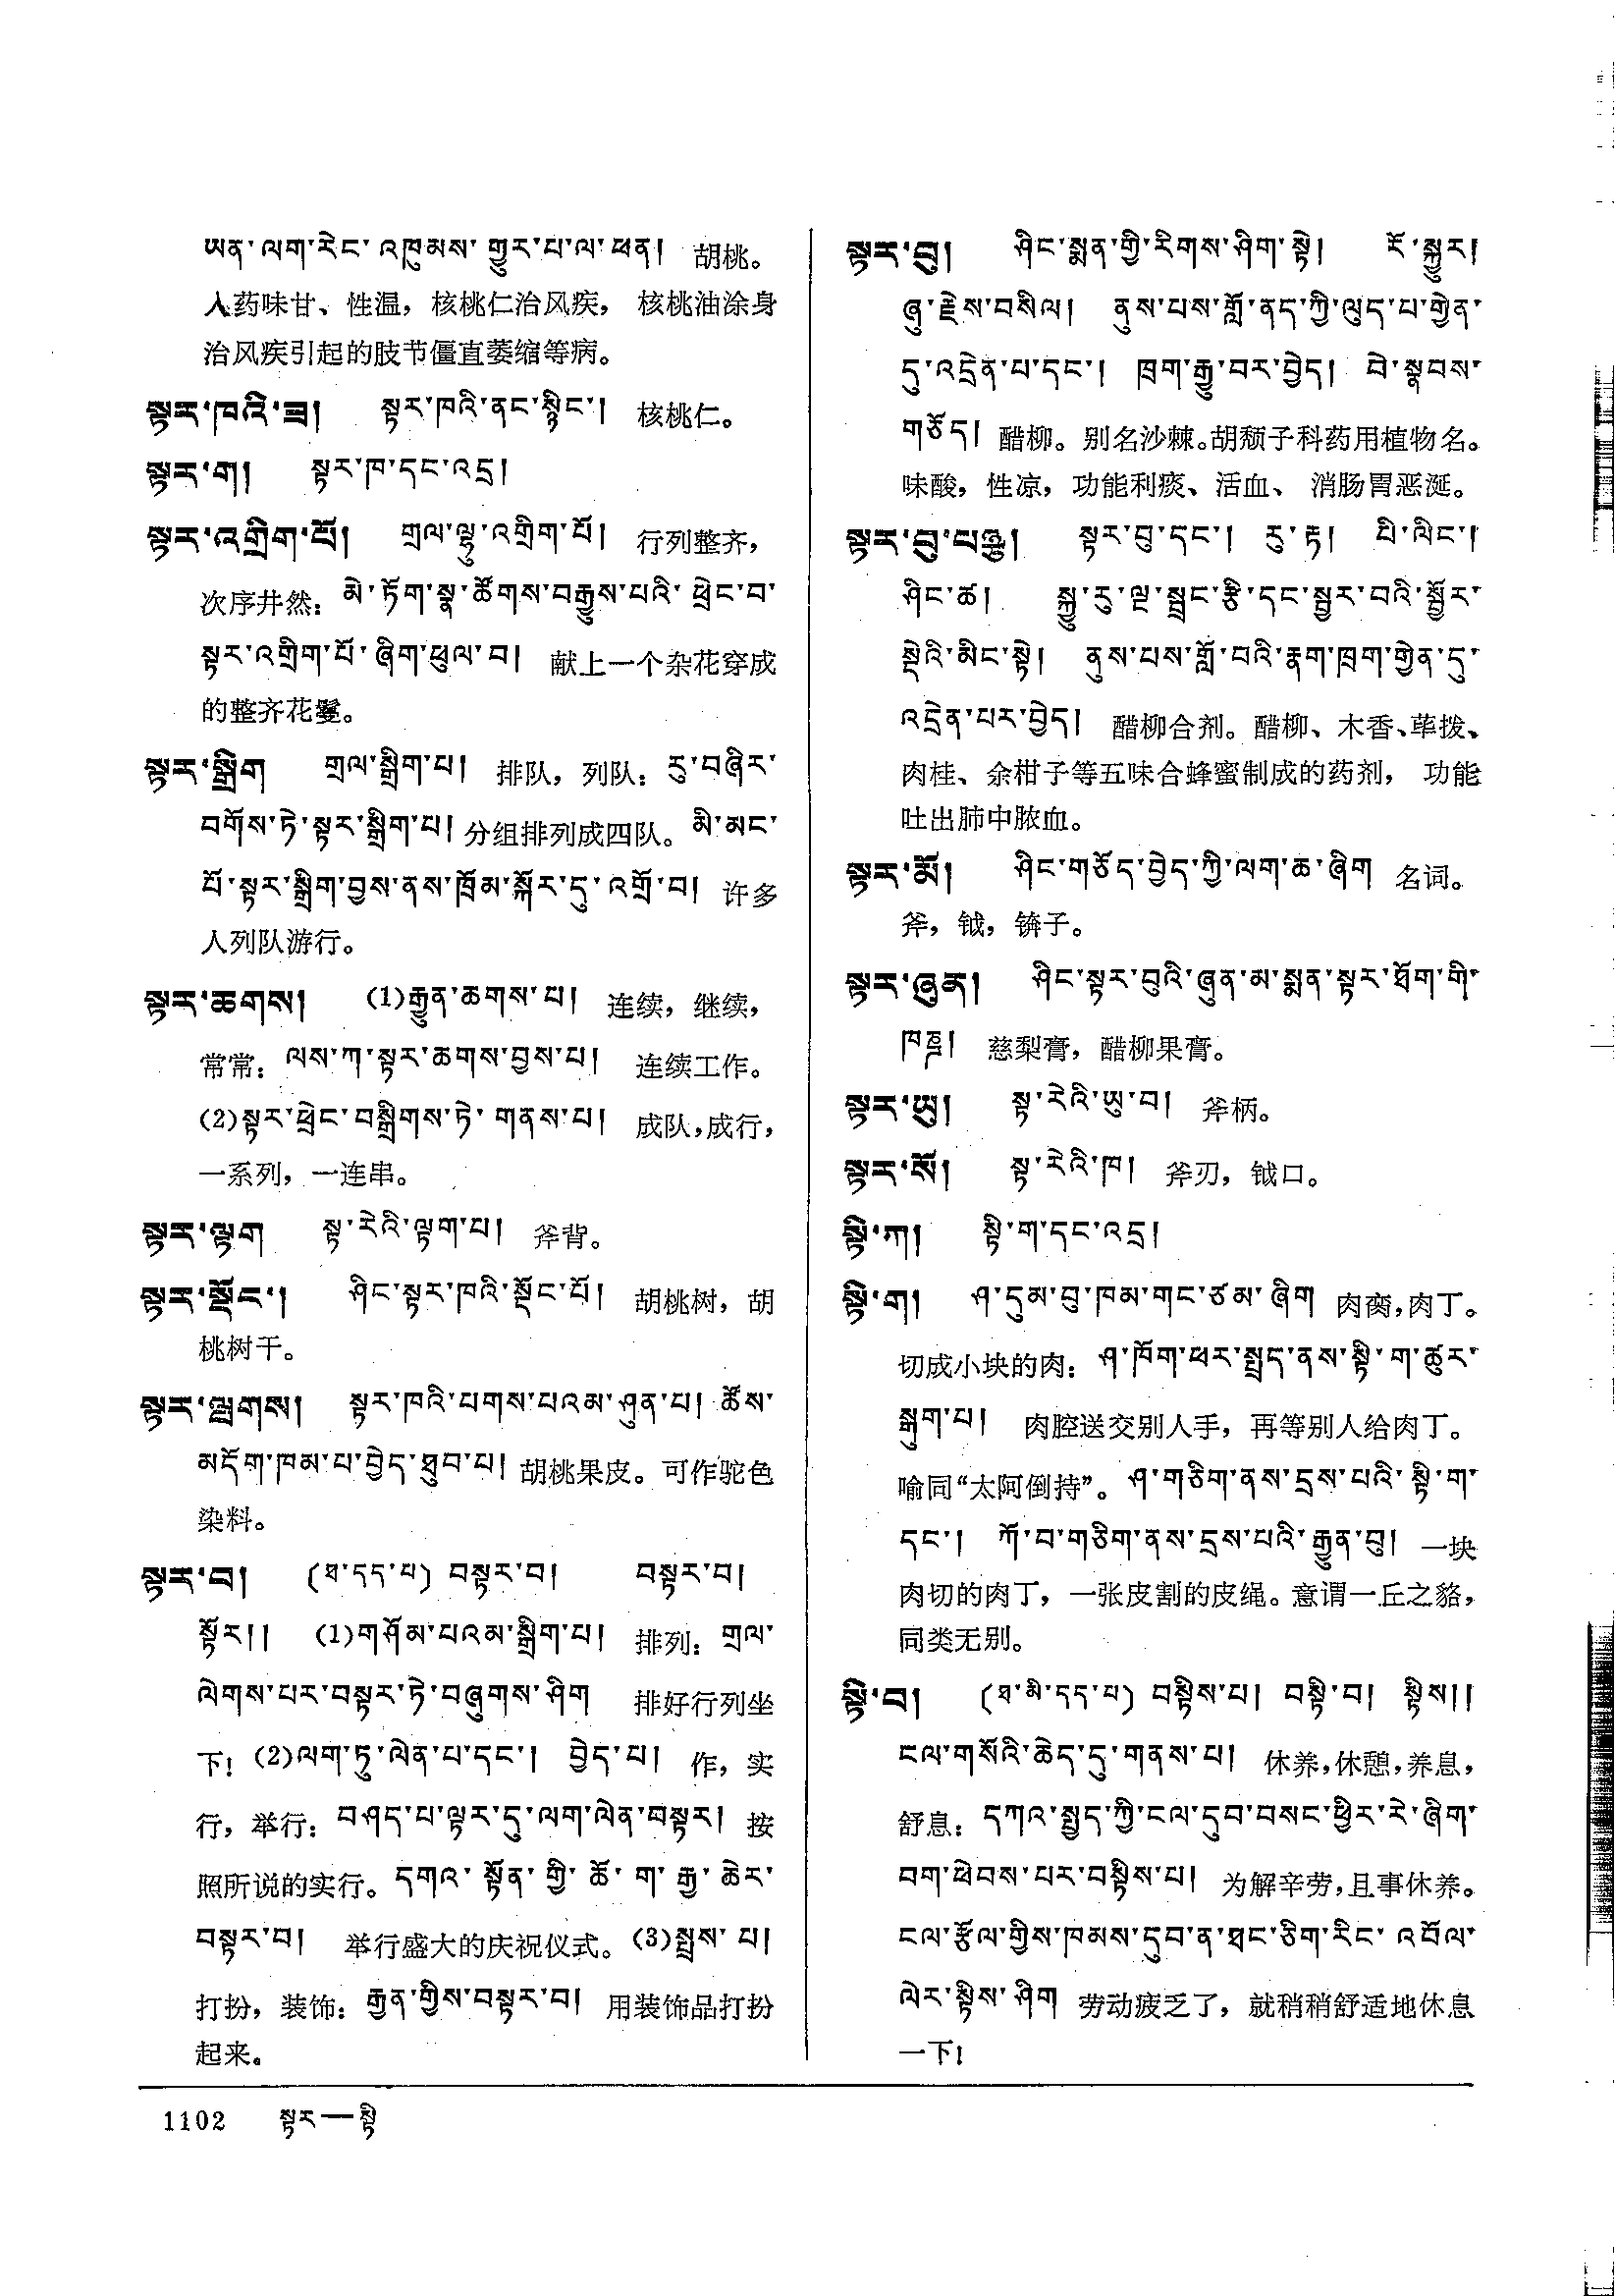 ཡན་ལག་རེང་འཁུམས་གྱུར་པ་ལ་ཕན། 胡桃。
入药味甘、性温，核桃仁治风疾， 核桃油涂身
治风疾引起的肢节僵直萎缩等病。
སྟར་ཁའི་ཟ། སྟར་ཁའི་ནང་སྙིང་། 核桃仁。
སྟར་ག། སྟར་ཁ་དང་འདྲ།
སྟར་འགྲིག་པོ། གྲལ་ལྟ་འགྲིག་པོ། 行列整齐，
次序井然：མེ་ཏོག་སྣ་ཚོགས་བརྒྱུས་པའི་ཕྲེང་བ་
སྟར་འགྲིག་པོ་ཞིག་ཕུལ་བ། 献上一个杂花穿成
的整齐花鬘。
སྟར་སྒྲིག གྲལ་སྒྲིག་པ། 排队，列队：རུ་བཞིར་
བགོས་ཏེ་སྟར་སྒྲིག་པ། 分组排列成四队。མི་མང་
པོ་སྟར་སྒྲིག་བྱས་ནས་ཁྲོམ་སྐོར་དུ་འགྲོ་བ། 许多
人列队游行。
སྟར་ཆགས། (1)རྒྱུན་ཆགས་པ། 连续，继续，
常常：ལས་ཀ་སྟར་ཆགས་བྱས་པ། 连续工作。
(2)སྟར་ཕྲེང་བསྒྲིགས་ཏེ་གནས་པ། 成队，成行，
一系列，一连串。
སྟར་ལྟག སྟ་རེའི་ལྟག་པ། 斧背。
སྟར་སྡོང་། ཤིང་སྟར་ཁའི་སྡོང་པོ། 胡桃树，胡
桃树干。
སྟར་ལྤགས། སྟར་ཁའི་པགས་པའམ་ཤུན་པ། ཚོས་
མདོག་ཁམ་པ་བྱེད་ཐུབ་པ། 胡桃果皮。可作驼色
染料。
སྟར་བ། (ཐ་དད་པ) བསྟར་བ། བསྟར་བ།
སྟོར།། (1)གཤོམ་པའམ་སྒྲིག་པ། 排列：གྲལ་
ལེགས་པར་བསྟར་ཏེ་བཞུགས་ཤིག 排好行列坐
下！(2)ལག་ཏུ་ལེན་པ་དང་། བྱེད་པ། 作，实
行，举行：བཤད་པ་ལྟར་དུ་ལག་ལེན་བསྟར། 按
照所说的实行。དགའ་སྟོན་གྱི་ཆོ་ག་རྒྱ་ཆེར་
བསྟར་བ། 举行盛大的庆祝仪式。(3)སྤྲས་པ།
打扮，装饰：རྒྱན་གྱིས་བསྟར་བ། 用装饰品打扮
起来。
སྟར་བུ། ཤིང་སྨན་གྱི་རིགས་ཤིག་སྟེ། རོ་སྐྱུར།
ཞུ་རྗེས་བསིལ། ནུས་པས་གློ་ནད་ཀྱི་ལུད་པ་གྱེན་
དུ་འདྲེན་པ་དང་། ཁྲག་རྒྱུ་བར་བྱེད། བེ་སྣབས་
གཅོད། 醋柳。别名沙棘。胡颓子科药用植物名。
味酸，性凉，功能利痰、活血、 消肠胃恶涎。
སྟར་བུ་པལྔ། སྟར་བུ་དང་། རུ་རྟ། པི་ལིང་།
ཤིང་ཚ། སྐྱུ་རུ་ལྔ་སྦྲང་རྩི་དང་སྦྱར་བའི་སྦྱོར་
སྡེའི་མིང་སྟེ། ནུས་པས་གློ་བའི་རྣག་ཁྲག་གྱེན་དུ་
འདྲེན་པར་བྱེད། 醋柳合剂。醋柳、木香、荜拨、
肉桂、余柑子等五味合蜂蜜制成的药剂， 功能
吐出肺中脓血。
སྟར་མོ། ཤིང་གཅོད་བྱེད་ཀྱི་ལག་ཆ་ཞིག 名词。
斧，钺，锛子。
སྟར་ཞུན། ཤིང་སྟར་བུའི་ཞུན་མ་སྨན་སྟར་ཐོག་གི་
ཁཎྜ། 慈梨膏，醋柳果膏。
སྟར་ཡུ། སྟ་རེའི་ཡུ་བ། 斧柄。
སྟར་སོ། སྟ་རེའི་ཁ། 斧刃，钺口。
སྟི་ཀ། སྟི་ག་དང་འདྲ།
སྟི་ག། ཤ་དུམ་བུ་ཁམ་གང་ཙམ་ཞིག 肉脔，肉丁。
切成小块的肉：ཤ་ཁོག་ཕར་སྤྲད་ནས་སྟི་ག་ཚུར་
སྒུག་པ། 肉腔送交别人手，再等别人给肉丁。
喻同“太阿倒持”。ཤ་གཅིག་ནས་དྲས་པའི་སྟི་ག་
དང་། ཀོ་བ་གཅིག་ནས་དྲས་པའི་རྒྱུན་བུ། 一块
肉切的肉丁，一张皮割的皮绳。意谓一丘之貉，
同类无别。
སྟི་བ། (ཐ་མི་དད་པ) བསྟིས་པ། བསྟི་བ། སྟིས།།
ངལ་གསོའི་ཆེད་དུ་གནས་པ། 休养，休憩，养息，
舒息：དཀའ་སྤྱད་ཀྱི་ངལ་དུབ་བསང་ཕྱིར་རེ་ཞིག་
བག་ཕེབས་པར་བསྟིས་པ། 为解辛劳，且事休养。
ངལ་རྩོལ་གྱིས་ཁམས་དུབ་ན་ཐང་ཅིག་རིང་འབོལ་
ལེར་སྟིས་ཤིག 劳动疲乏了，就稍稍舒适地休息
一下！
1102 སྟར—སྟི